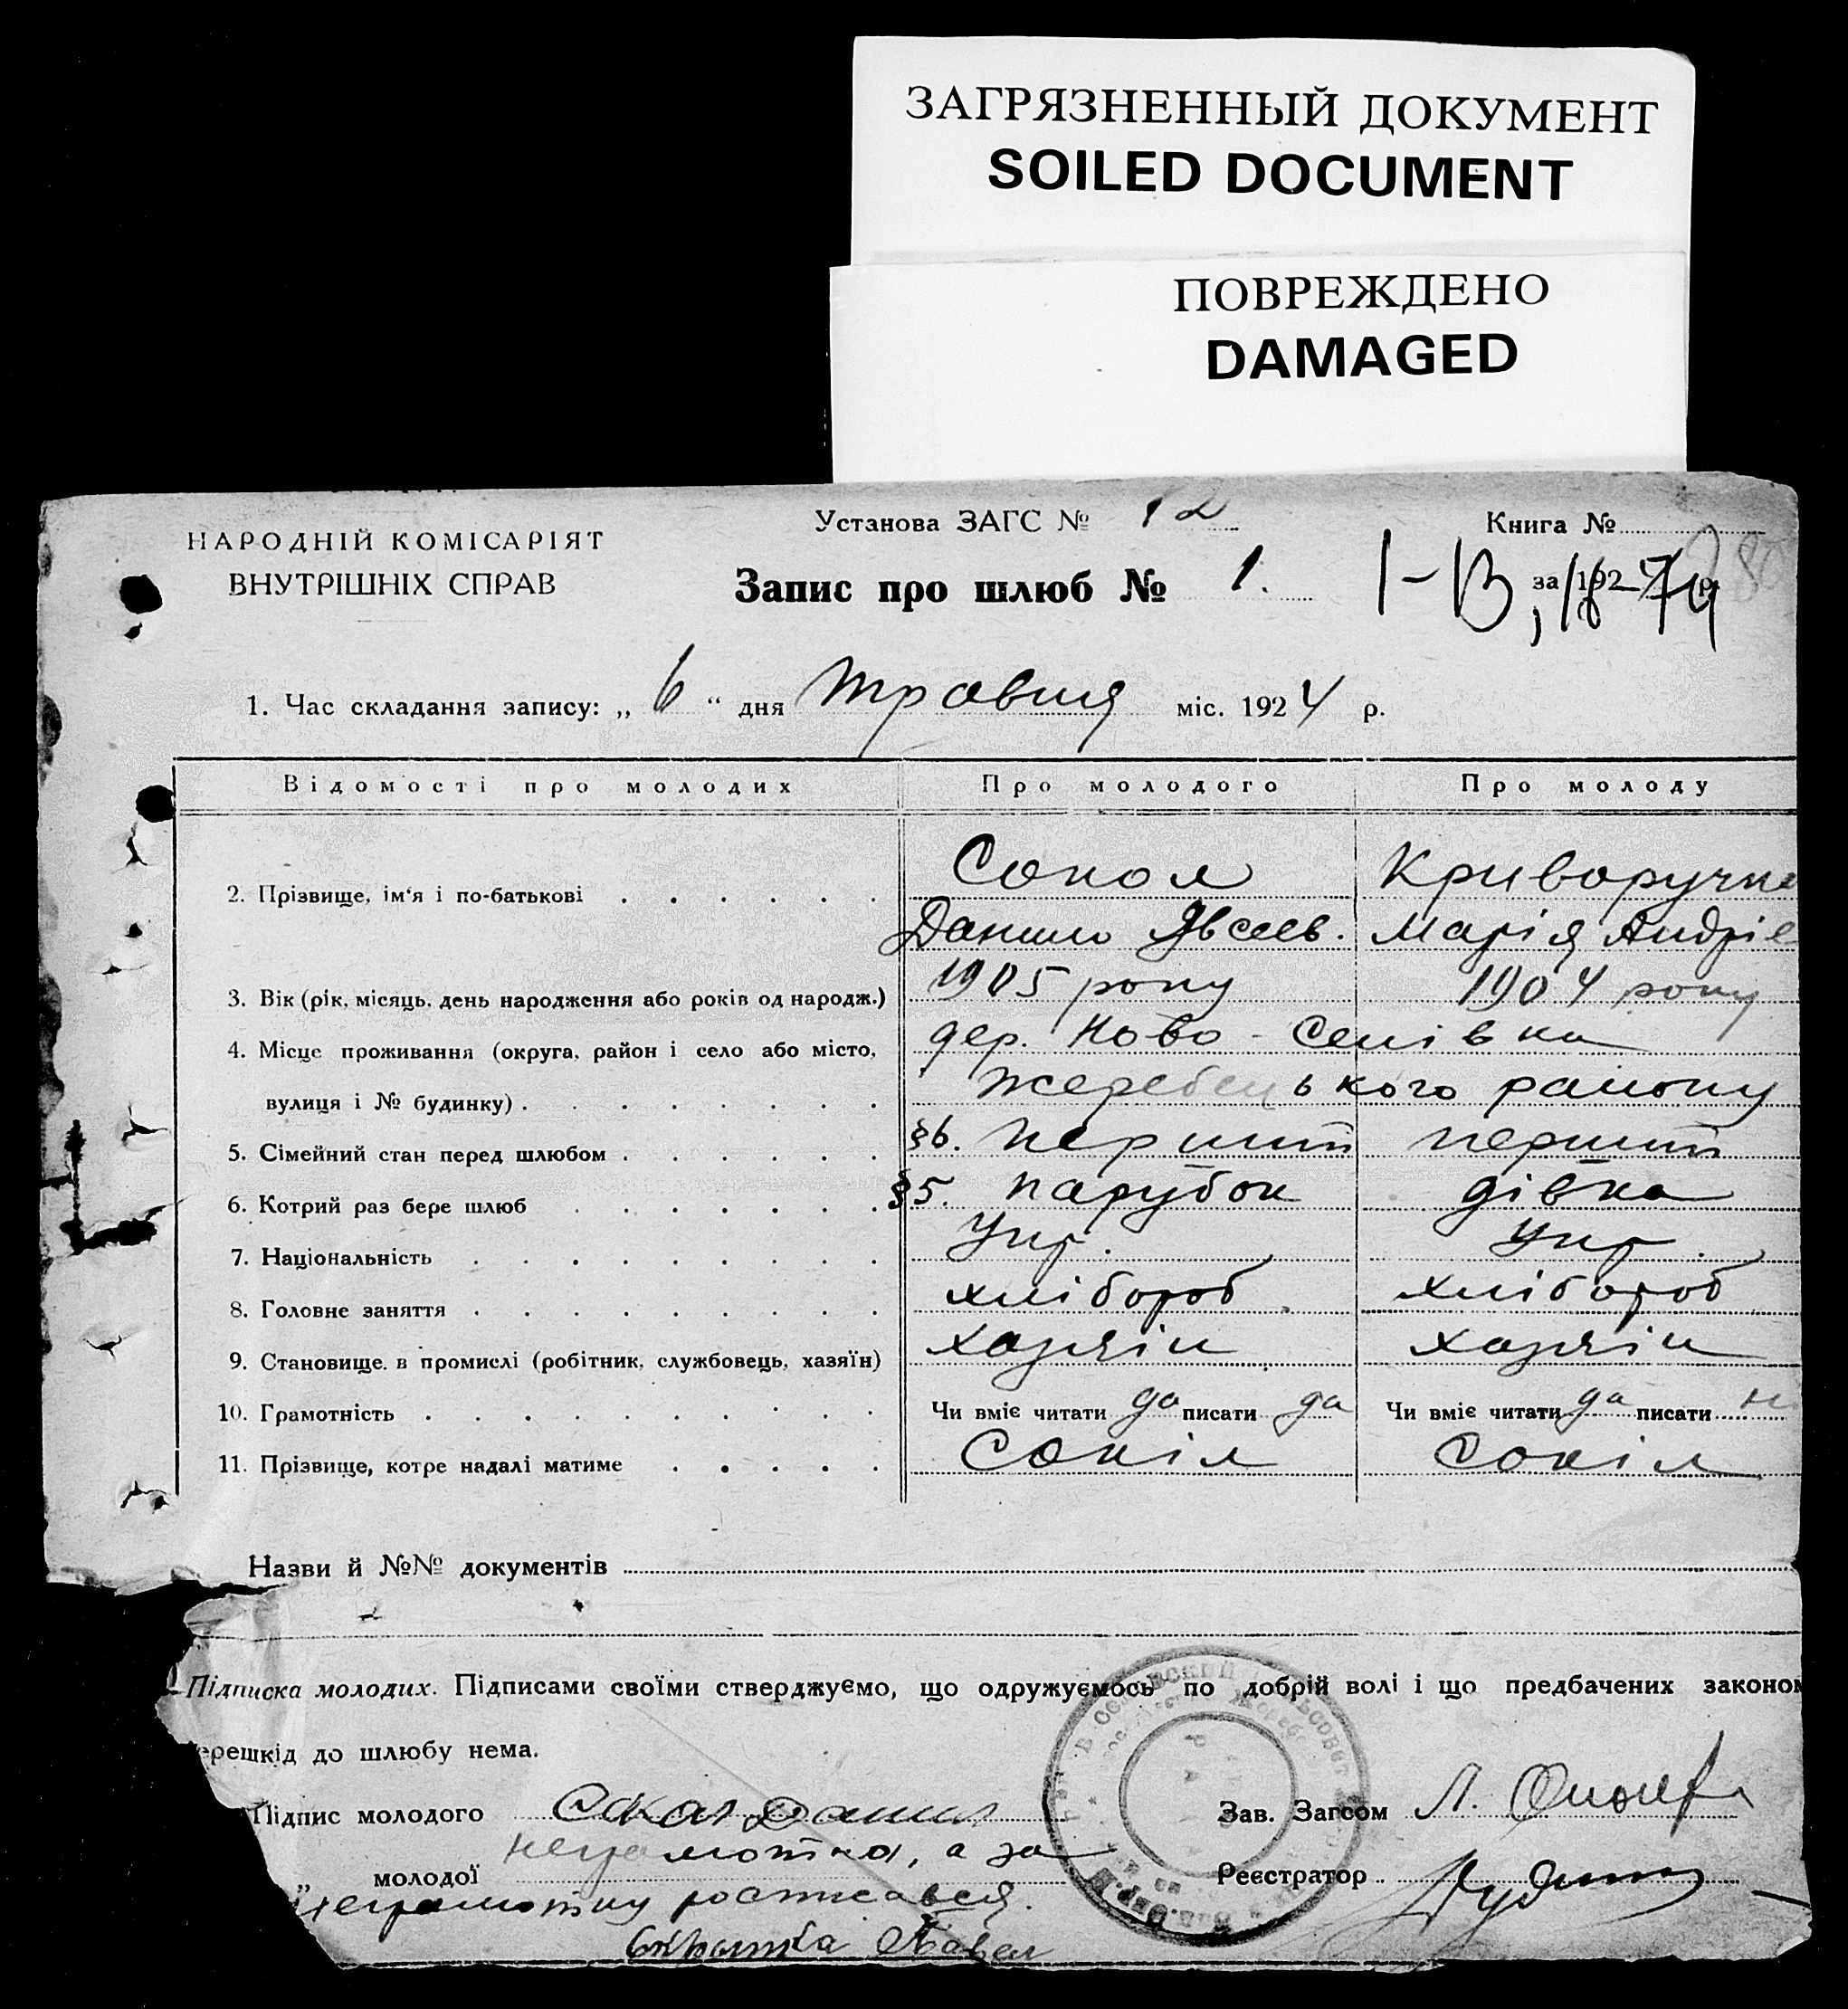 ЗАГРЯЗНЕННЫЙ ДОКУМЕНТ
SOILED DOCUMENT
ПОВРЕЖДЕНО
DAMAGED
НАРОДНІЙ КОМІСАРІЯТ
ВНУТРІШНІХ СПРАВ
Установа ЗАГС № 12
Книга №
Запис про шлюб № 1.
за 192
1. Час складання запису: „ 6 “ дня травня міс. 1924 р.
Відомості про молодих Про молодого Про молоду
2. Прізвище, ім'я і по-батькові Сокол Криворучка
Данило Явсеев. Марія Андріе
3. Вік (рік, місяць, день народження або років од народж.) 1905 року 1904 року
4. Місце проживання (округа, район і село або місто, дер. Ново-Селівка
вулиця і № будинку) Жеребецького району
5. Сімейний стан перед шлюбом §6. перший перший
6. Котрий раз бере шлюб §5. парубок дівка
7. Національність Укр. Укр.
8. Головне заняття хлібороб хлібороб
9. Становище в промислі (робітник, службовець, хазяїн) хазяін хазяін
10. Грамотність Чи вміє читати да писати да Чи вміє читати да писати
11. Прізвище, котре надалі матиме Сокіл Сокіл
Назви й №№ документів
Підписка молодих. Підписами своїми стверджуємо, що одружуємось по добрій волі і що предбачених законом
ерешкід до шлюбу нема.
Підпис молодого Сокол Данил Зав. Загсом Л.
„ молодої неграмотна, а за Реєстратор
неграмотну росписався.
Павел